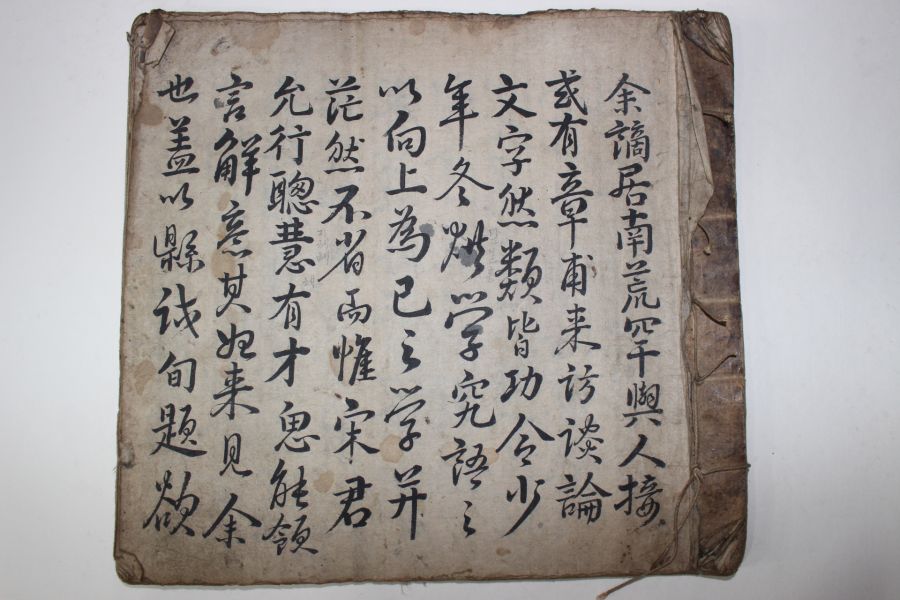 余謫居南荒罕與人接
或有章甫來訪談論
文字然類皆功令少
年冬烘學究語之
以向上爲己之學并
茫然不省而惟宋君
允行聰慧有才思能領
言解意其始來見余
也盖以縣試旬題欲